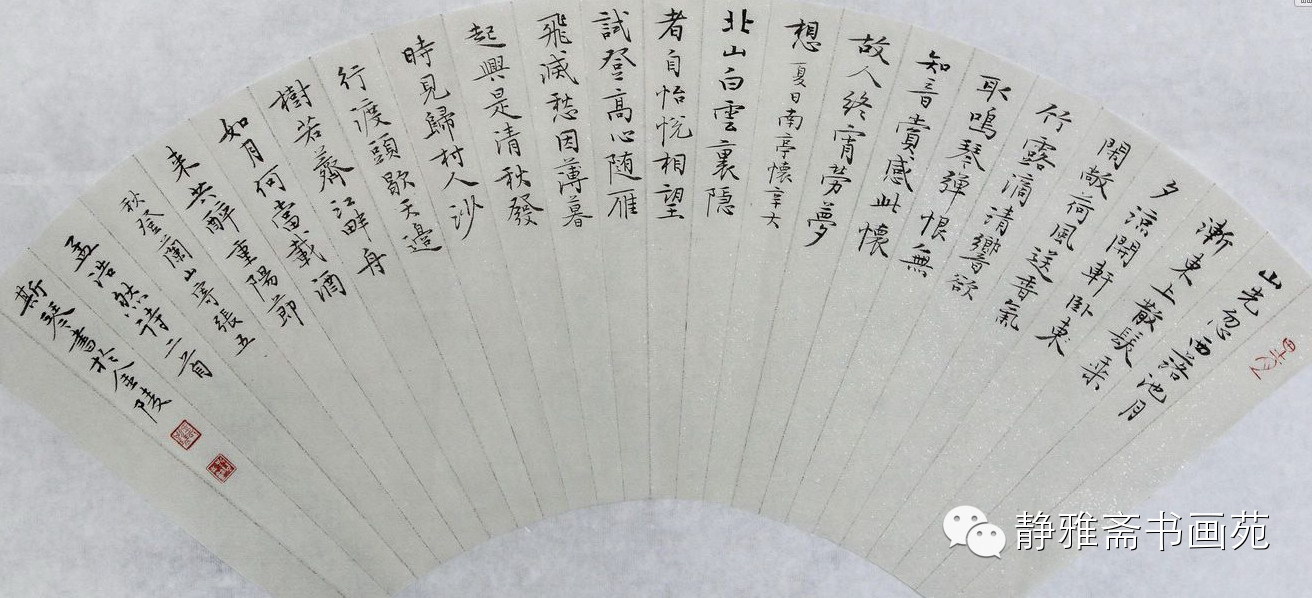 山光忽西落池月
漸東上散髮乘
夕涼開軒臥
閑敞荷風送香氣
竹露滴清響欲
取鳴琴彈恨無
知音賞感此懷
故人終宵勞夢
想 夏日南亭懷辛大
北山白雲裏隱
者自怡悅相望
試登高心随雁
飛滅愁因薄暮
起興是清秋發
時見歸村人沙
行渡頭歇天邊
樹若薺江畔舟
如月何當載酒
来共醉重陽節
秋登蘭山寄張五
孟浩然詩二首
斯琴書於金陵
静雅斋书画苑